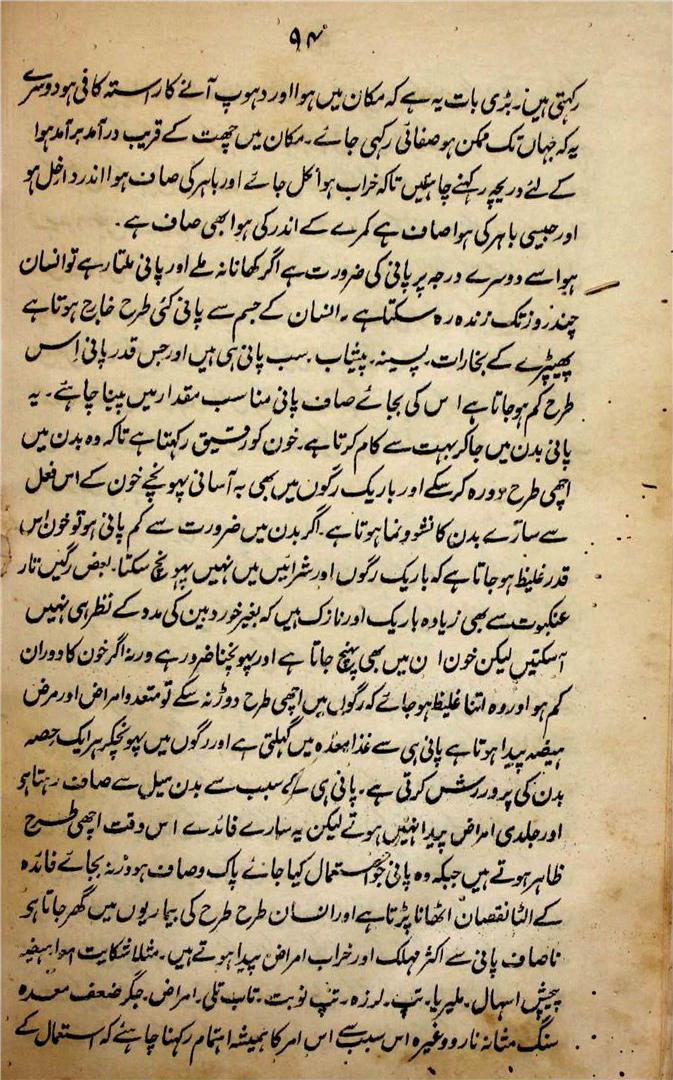 ۹۴
رکہتی ہیں۔ بڑی بات یہ ہے کہ مکان میں ہوا اور دہوپ آنے کا راستہ کافی ہو دوسرے
یہ کہ جہاں تک ممکن ہو صفائی رکہی جائے۔ مکان میں چھت کے قریب درآمد برآمد ہوا
کے لئے دریچہ رکہنے چاہئیں تاکہ خراب ہوا نکل جائے اور باہر کی صاف ہوا اندر داخل ہو
اور جیسی باہر کی ہوا صاف ہے کمرے کے اندر کی ہوا بھی صاف ہے۔
ہوا سے دوسرے درجہ پر پانی کی ضرورت ہے اگر کھانا نہ ملے اور پانی ملتا رہے تو انسان
چند روز تک زندہ رہ سکتا ہے۔ انسان کے جسم سے پانی کئی طرح خارج ہوتا ہے
پھیپڑے کے بخارات۔ پسینہ۔ پیشاب۔ سب پانی ہی ہیں اور جس قدر پانی اِس
طرح کم ہو جاتا ہے اس کی بجائے صاف پانی مناسب مقدار میں پینا چاہئے۔ یہ
پانی بدن میں جاکر بہت سے کام کرتا ہے۔ خون کو رقیق رکہتا ہے تاکہ وہ بدن میں
اچھی طرح دورہ کر سکے اور باریک رگوں میں بھی بہ آسانی پہونچے خون کے اس فعل
سے سارے بدن کا نشو و نما ہوتا ہے۔ اگر بدن میں ضرورت سے کم پانی ہو تو خون اس
قدر غلیظ ہو جاتا ہے کہ باریک رگوں اور شرائیں میں نہیں پہونچ سکتا۔ بعض رگیں تار
عنکبوت سے بھی زیادہ باریک اور نازک ہیں کہ بغیر خوردبین کی مدد کے نظر ہی نہیں
آ سکتیں لیکن خون ان میں بھی پہنچ جاتا ہے اور پہونچنا ضرور ہے ورنہ اگر خون کا دوران
کم ہو اور وہ اتنا غلیظ ہو جائے کہ رگوں میں اچھی طرح دوڑ نہ سکے تو متعدد امراض اور مرض
ہیضہ پیدا ہوتا ہے پانی ہی سے غذا معدہ میں گہلتی ہے اور رگوں میں پہونچکر ہر ایک حصہ
بدن کی پرورش کرتی ہے۔ پانی ہی کے سبب سے بدن میل سے صاف رہتا ہو
اور جلدی امراض پیدا نہیں ہوتے لیکن یہ سارے فائدے اس وقت اچھی طرح
ظاہر ہوتے ہیں جبکہ وہ پانی جو استعمال کیا جائے پاک و صاف ہو ورنہ بجائے فائدہ
کے الٹا نقصان اٹھانا پڑتا ہے اور انسان طرح طرح کی بیماریوں میں گھر جاتا ہو
نا صاف پانی سے اکثر مہلک اور خراب امراض پیدا ہوتے ہیں۔ مثلا شکایت ہوا۔ ہیضہ
پیچش اسہال۔ ملیریا۔ تپ۔ لرزہ۔ تپ نوبت۔ تاب تلی۔ امراض۔ جگر ضعف معدہ
سنگ مثانہ نارو وغیرہ اس سبب سے اس امر کا ہمیشہ اہتمام رکہنا چاہئے کہ استعمال کے